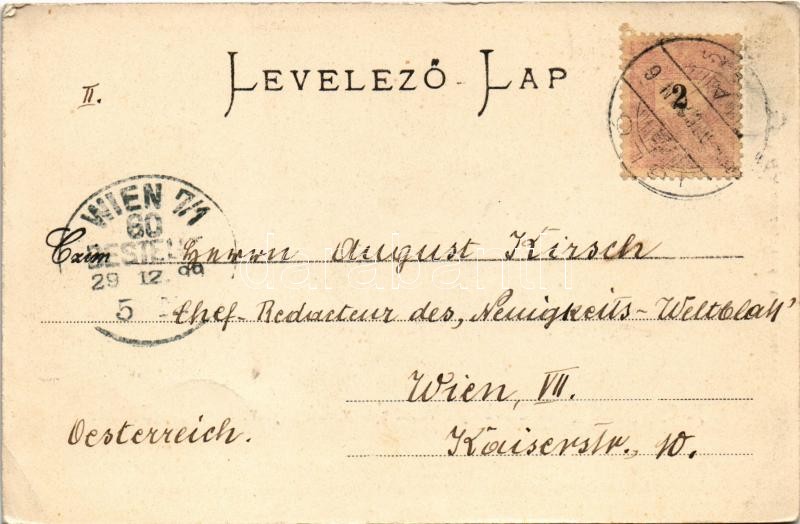 LEVELEZŐ LAP
II.
2
WIEN 7/1
60
BESTELL
29 12. 99
5
Czim Herrn August Kirsch
Chef-Redacteur des „Neuigkeits-Weltblatt"
Wien, VII.
Oesterreich.
Kaiserstr., 10.
darabanth